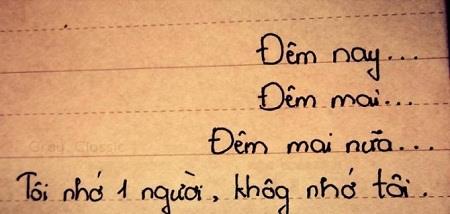 Đêm nay...
Đêm mai...
Đêm mai nữa...
Gray Classic
Tôi nhớ 1 người, khôg nhớ tôi.